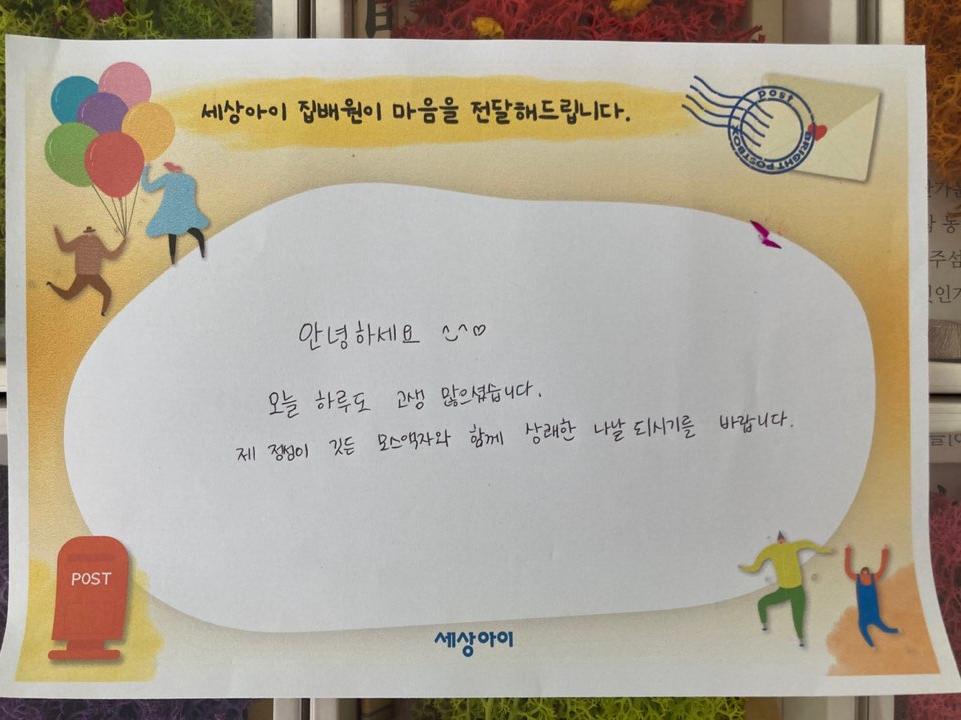 세상아이 집배원이 마음을 전달해드립니다.
POST
BRIGHT POSTBOX
안녕하세요 ^^♡
오늘 하루도 고생 많으셨습니다.
제 정성이 깃든 모스액자와 함께 상쾌한 나날 되시기를 바랍니다.
POST
세상아이